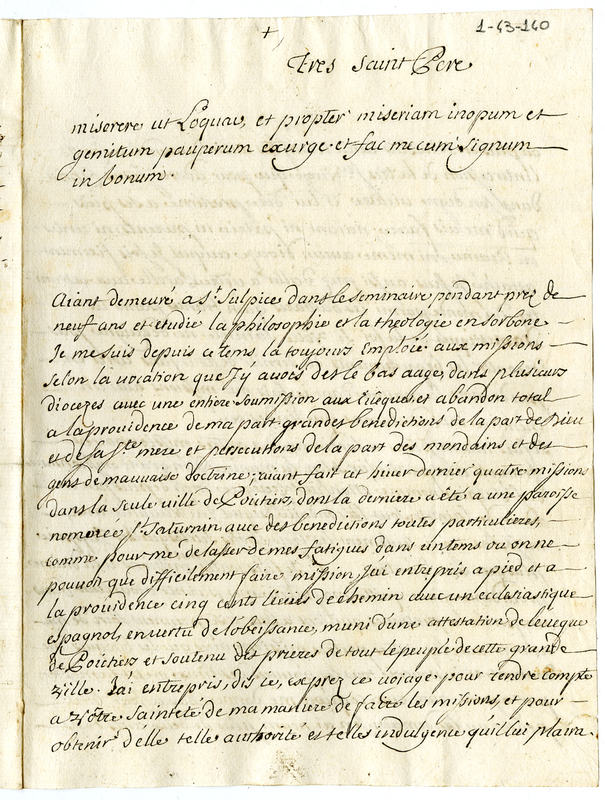 1-43-140
+
Tres saint Pere
miserere ut Loquar, et propter miseriam inopum et
gemitum pauperum exurge et fac mecum signum
in bonum.
Aiant demeuré a st Sulpice dans le seminaire pendant prez de
neuf ans et etudié la philosophie et la theologie en sorbone
Je me suis depuis ce tems la toujours Emploié aux missions
selon la vocation que J'y avois dez le bas aage, dans plusieurs
diocezes avec une entiere soumission aux Eveques et abandon total
a la providence de ma part grandes benedictions de la part de Dieu
et de sa Ste mere et persecutions de la part des mondains et des
gens de mauvaise doctrine; aiant fait cet hiver dernier quatre missions
dans la seule ville de Poictiers, dont la derniere a ête a une paroisse
nomeée st Saturnin avec des benedictions toutes particulieres,
comme pour me delasser de mes fatigues dans un tems ou on ne
pouvoit que difficilement faire mission, Jai entrepris a pied et a
la providence cinq cents lieues de chemin avec un ecclesiastique
espagnol, en vertu de lobeissance, muni d'une attestation de leveque
de Poictiers et soutenu des prieres de tout le peuple de cette grande
ville. Jai entrepris, dis ie, exprez ce voiage pour rendre compte
a vôtre sainteté de ma maniere de faire les missions, et pour
obtenir d'elle telle authorité et telles indulgence quil lui plaira.